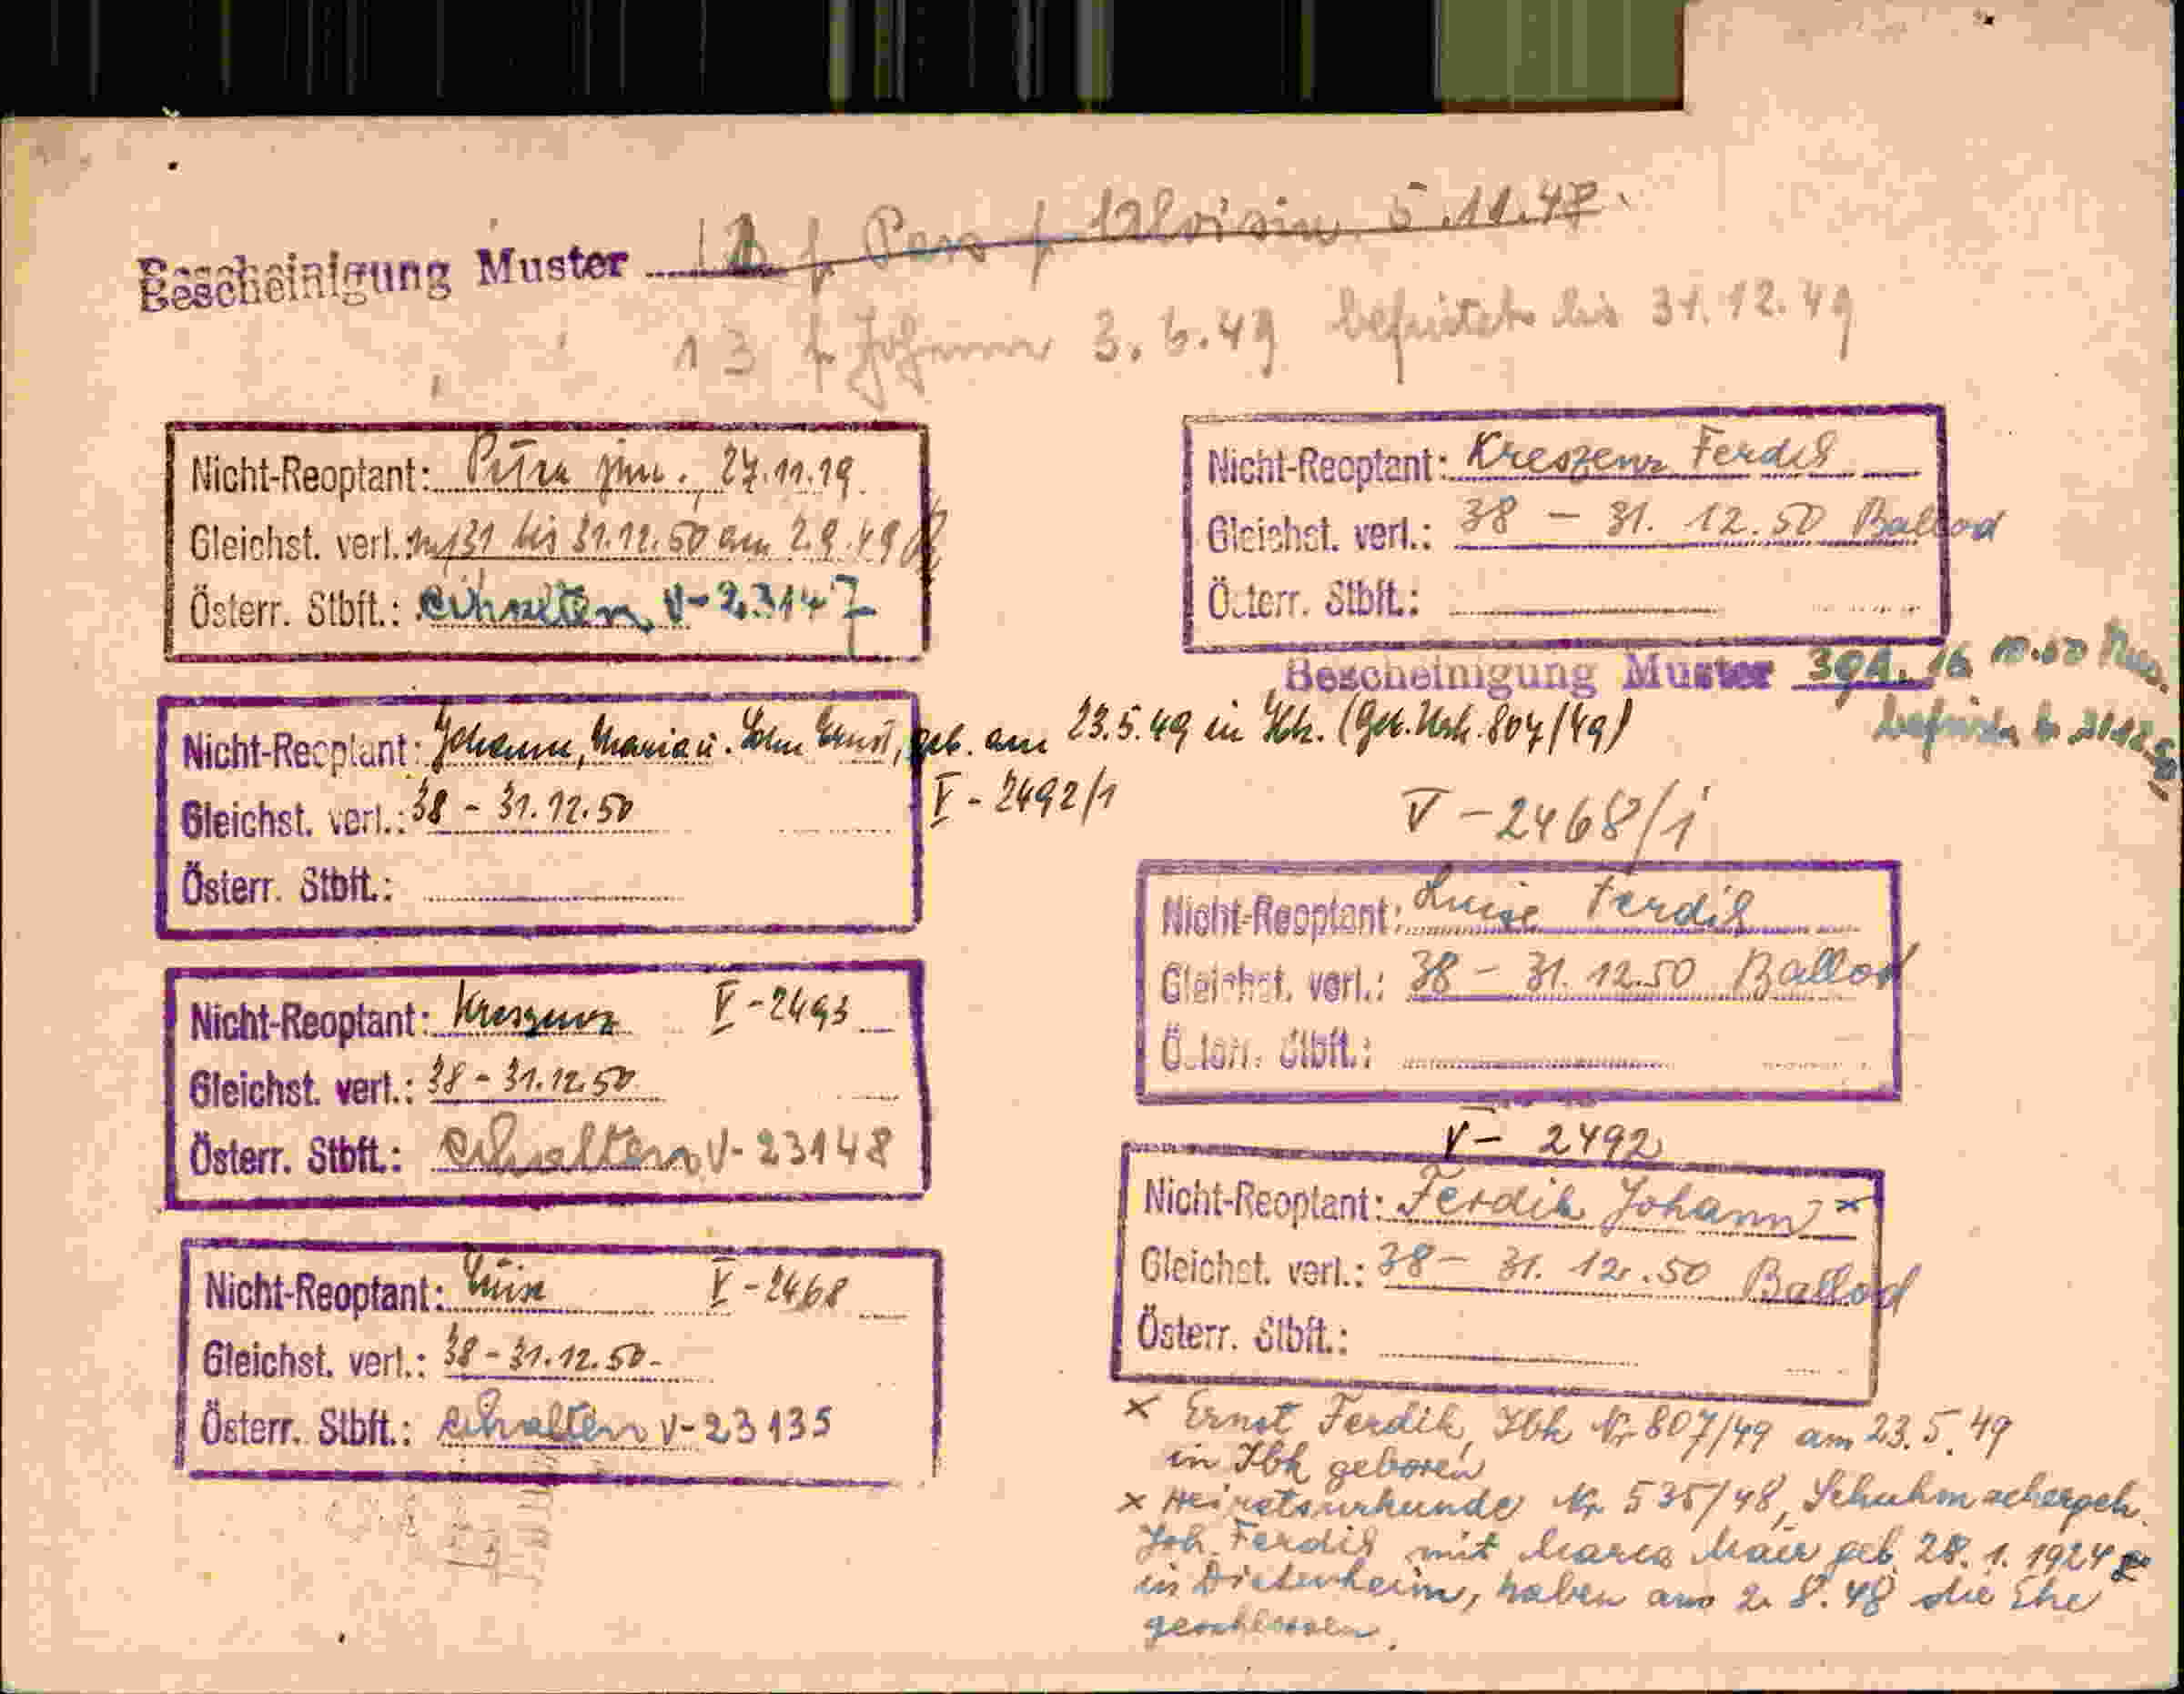 Bescheinigung Muster 5.11.47.
13 f. Johann 3.6.49 befristet bis 31.12.49
Nicht-Reoptant: jun., 27.11.19.
Gleichst. verl. bis 31.12.50 am 2.9.49
Österr. Stbft.: erhalten V-23147
Nicht-Reoptant: Johann, Maria u. Sohn Ernst, geb. am 23.5.49 in Ibk. (Geb. Urk. 807/49)
Gleichst. verl.: 38 - 31.12.50 V - 2492/1
Österr. Stbft.:
Nicht-Reoptant: Kreszenz V - 2493
Gleichst. verl.: 38 - 31.12.50
Österr. Stbft.: erhalten V- 23148
Nicht-Reoptant: V - 2468
Gleichst. verl.: 38 - 31.12.50.
Österr. Stbft.: erhalten V- 23135
Nicht-Reoptant: Kreszenz Ferdik
Gleichst. verl.: 38 - 31. 12. 50 Ballod
Österr. Stbft.:
Bescheinigung Muster
V - 2468/1
Nicht-Reoptant: Luise Ferdik
Gleichst. verl.: 38 - 31. 12.50 Ballod
Österr. Stbft.:
V - 2492
Nicht-Reoptant: Ferdik Johann ×
Gleichst. verl.: 38 - 31. 12. 50 Ballod
Österr. Stbft.:
× Ernst Ferdik, Ibk Nr 807/49 am 23.5.49
in Ibk geboren
× Heiratsurkunde Nr 535/48, Schuhmachergeh.
Joh. Ferdik mit Maria Mair geb. 28. 1. 1924
in Dietenheim, haben am 2. 8. 48 die Ehe
geschlossen.